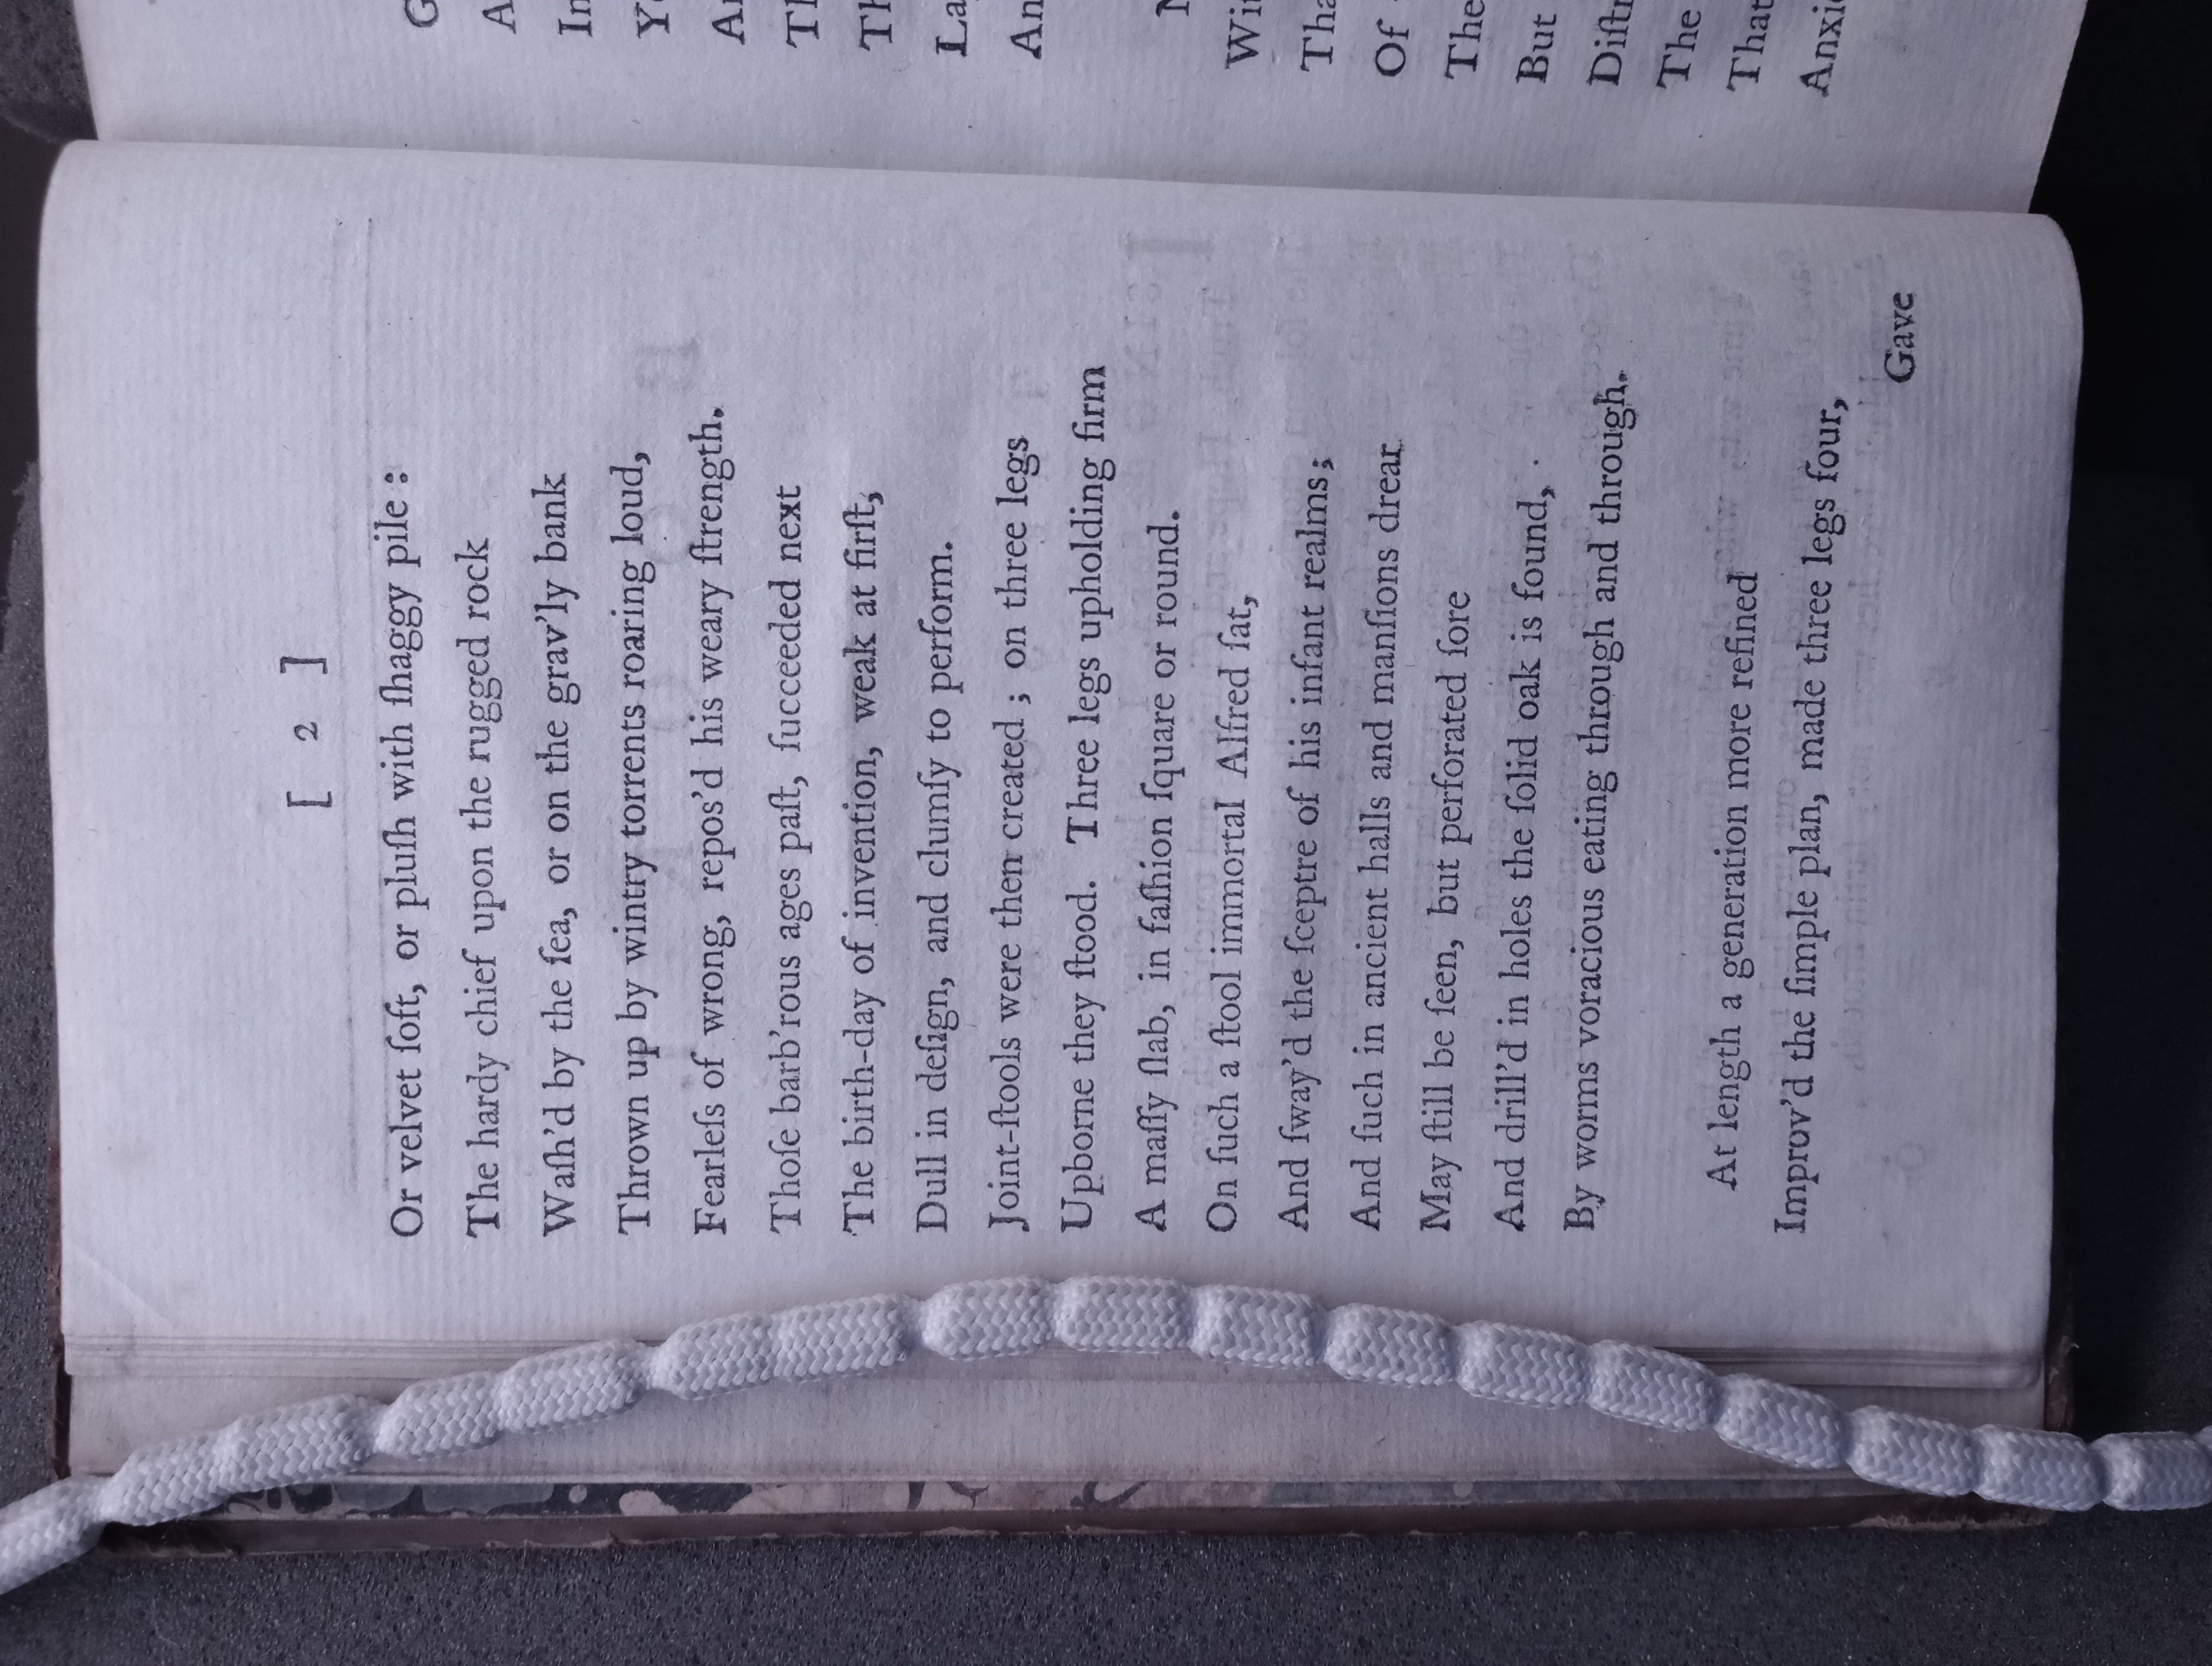 [ 2 ]
Or velvet ſoft, or pluſh with ſhaggy pile :
The hardy chief upon the rugged rock
Waſh'd by the ſea, or on the grav'ly bank
Thrown up by wintry torrents roaring loud,
Fearleſs of wrong, repos'd his weary ſtrength.
Thoſe barb'rous ages paſt, ſucceeded next
The birth-day of invention, weak at firſt,
Dull in deſign, and clumſy to perform.
Joint-ſtools were then created ; on three legs
Upborne they ſtood. Three legs upholding firm
A maſſy ſlab, in faſhion ſquare or round.
On ſuch a ſtool immortal Alfred ſat,
And ſway'd the ſceptre of his infant realms ;
And ſuch in ancient halls and manſions drear
May ſtill be ſeen, but perforated ſore
And drill'd in holes the ſolid oak is found,
By worms voracious eating through and through.
At length a generation more refined
Improv'd the ſimple plan, made three legs four,
Gave
Of
The
But
The
That